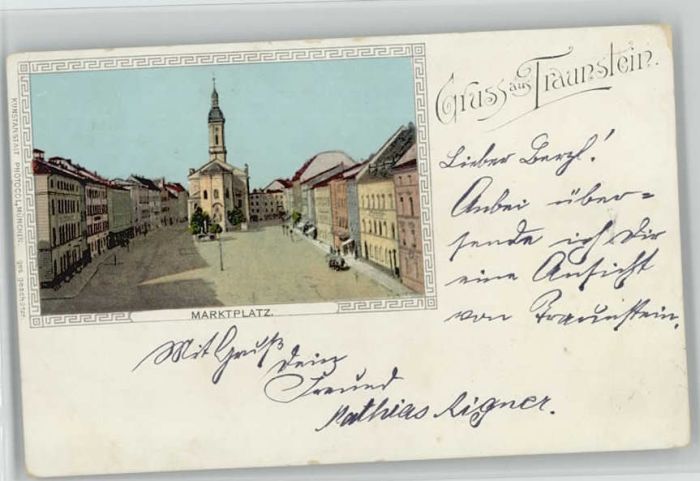 Gruss aus Traunstein.
Lieber Berch!
Anbei über=
sende ich Dir
eine Ansicht
von Traunstein.
KUNSTANSTALT PHOTOCOL MÜNCHEN. ges. geschützt.
MARKTPLATZ.
Mit Gruß
Dein
Freund
Mathias Aigner.